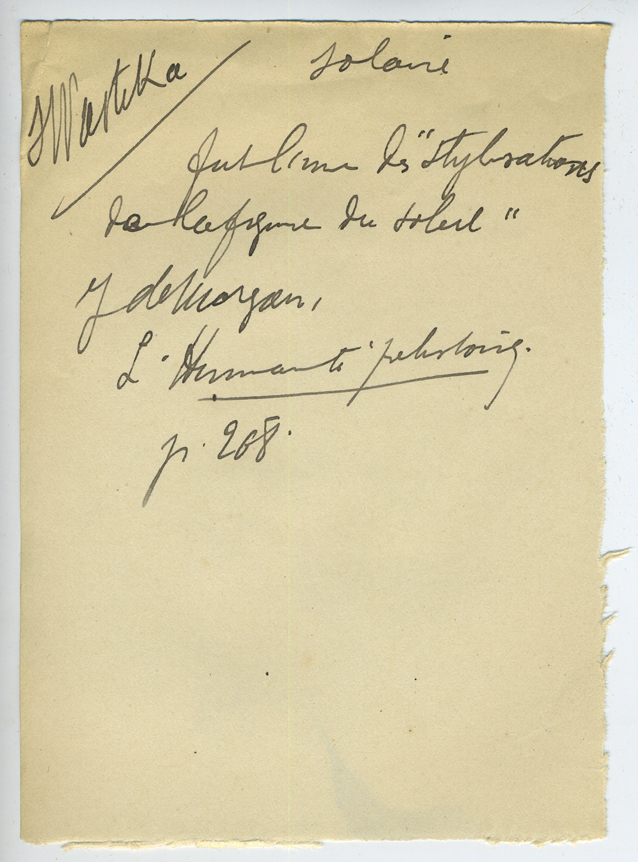 Swastika
solaire
fut l'une des "stylisations
de la figure du soleil"
J de Morgan,
L'Humanité préhistoriq.
p. 268.